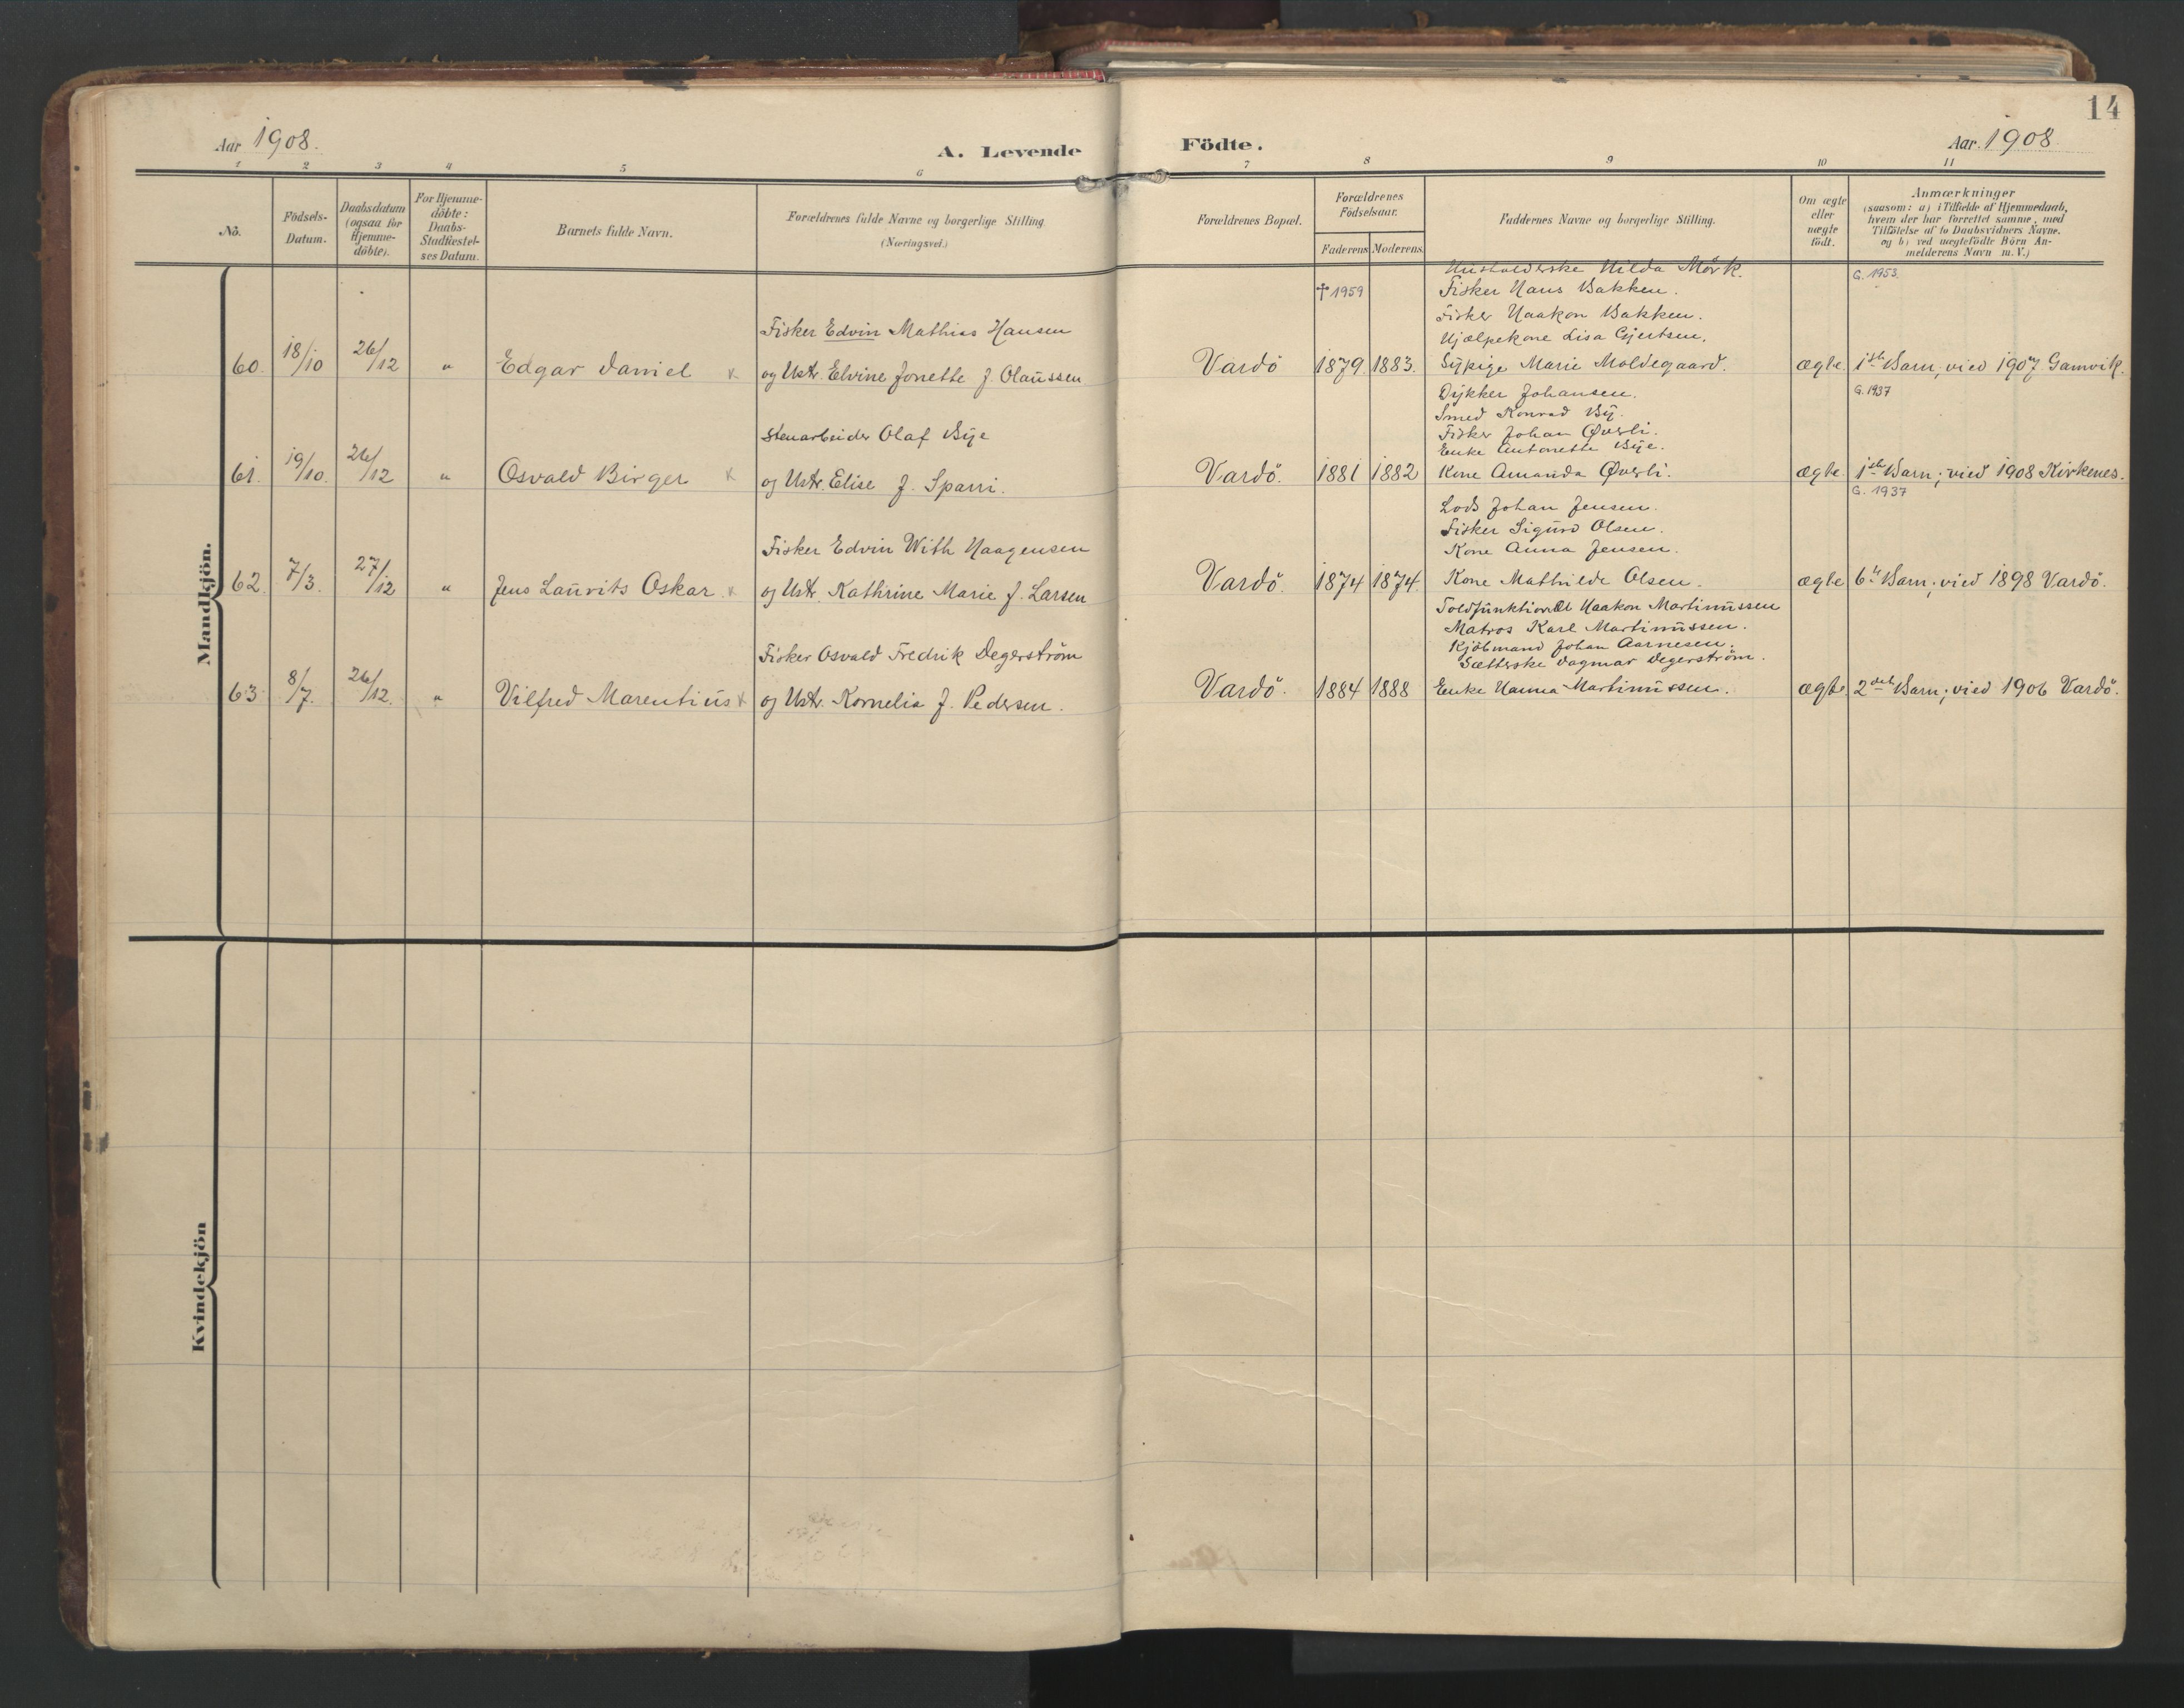 14
Aar 1908.
A. Levende Födte.
Aar. 1908.
1 2 3 4 5 6 7 8 9 10 11
No.
Födsels-
Datum.
Daabsdatum
(ogsaa for
Hjemme-
döbte).
For Hjemme-
döbte:
Daabs-
Stadfæstel-
ses Datum.
Barnets fulde Navn.
Forældrenes fulde Navne og borgerlige Stilling
(Næringsvei.)
Forældrenes Bopæl.
Forældrenes
Födselsaar.
Faderens Moderens
Faddernes Navne og borgerlige Stilling.
Om ægte
eller
uægte
födt.
Anmærkninger
(saasom: a) i Tilfælde af Hjemmedaab,
hvem der har forrettet samme, med
Tilföielse af to Daabsvidners Navne.
og b) ved uægtefödte Börn An-
melderens Navn m.V.)
Mandkjön.
Husholderske Hilda Mörk.
G. 1953.
† 1959
Fisker Hans Bakken.
Fisker Haakon Bakken.
Fisker Edvin Mathias Hansen
Hjælpekone Lisa Gjertsen.
60. 18/10 26/12 " Edgar Daniel x og Ustr. Elvine Jonette f. Olaussen Vardö 1879. 1883. Sypige Marie Moldegaard. ægte. 1ste Barn; vied 1907 Gamvik.
Dykker Johansen.
G. 1937
Smed Konrad By.
Stenarbeider Olaf Bye
Fisker Johan Øverli.
Enke Antonette Bye.
61. 19/10. 26/12 " Osvald Birger x og Ustr. Elise f. Sparri. Vardö. 1881 1882 Kone Amanda Øverli. ægte. 1ste Barn; vied 1908 Kirkenes.
G. 1937
Lods Johan Jensen.
Fisker Sigurd Olsen.
Fisker Edvin With Haagensen
Kone Anna Jensen.
62. 7/3. 27/12 " Jens Lauvits Oskar x og Ustr. Kathrine Marie f. Larsen Vardö. 1874 1874. Kone Mathilde Olsen. ægte 6te Barn; vied 1898 Vardö.
Haakon Martinussen
Matros Karl Martinussen.
Kjöbmand Johan Aarnesen.
Fisker Osvald Fredrik Degerström
Sætterske Dagmar Degerström.
63 8/7. 26/12. " Vilfred Marentius x og Ustr. Kornelia f. Pedersen. Vardö. 1884 1888 Enke Hanna Martinussen. ægte. 2det Barn; vied 1906 Vardö.
Kvindekjön